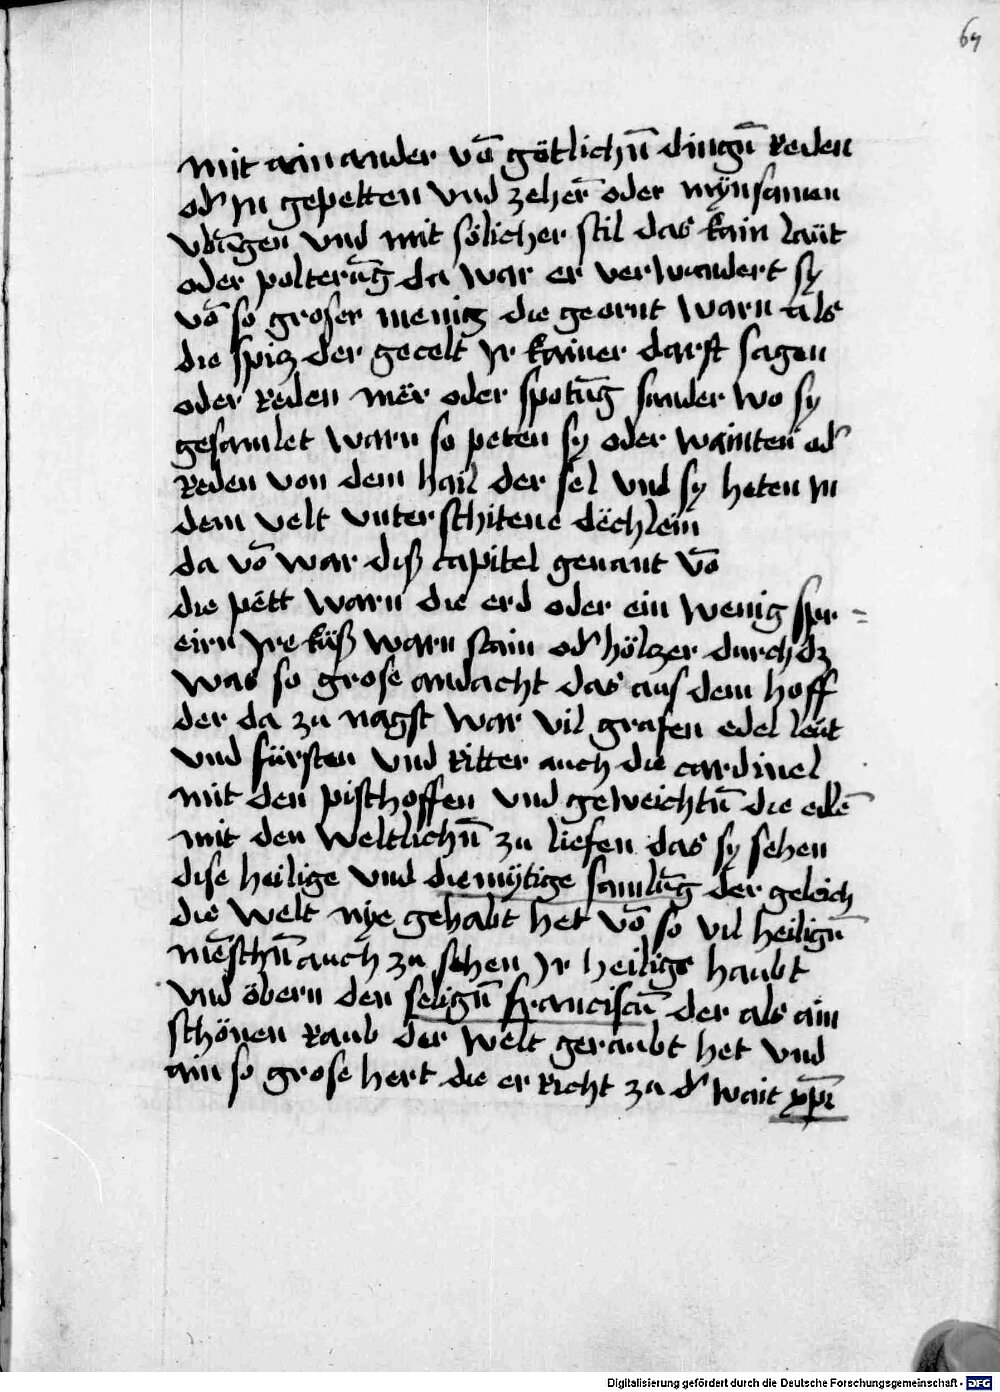 64
mit ain ander võ götlichñ dingñ Reden
od' jn gepetten vnd zeherē oder mÿnsamen
vbũgen vnd mit sölicher stil das kain laüt
oder polterũg da war er verwundert sy
võ so groser menig die geornt warn als
die spiz der gecelt jr kainer darft sagen
oder Reden mër oder spotũg sunder wo sy
gesamlet warn so peten sy oder wainten od'
Reden von dem hail der sel vnd sy heten jn
dem velt vnterschitene dëchlein
da võ war diß capitel genant võ
die pëtt warn die erd oder ein wenig spr=
eirn jre küß warn stain od' hölzer durch dz
was so grose andacht das aus dem hoff
der da zu nagst war vil grafen edel leüt
vnd fürsten vnd Ritter auch die cardinel
mit den pischoffen vnd geweichtñ die edlē
mit den weltlichñ zu liefen das sy sehen
dise heilige vnd diemÿtige samlũg der geleich
die welt nye gehabt het võ so vil heiligñ
mēschñ auch zu sehen jr heiligs haubt
vnd öbern den seligñ franciscũ der als ain
schönen Raub der welt geraubt het vnd
ain so grose hert die er Richt zu d' wait xp̄i
Digitalisierung gefördert durch die Deutsche Forschungsgemeinschaft - DFG